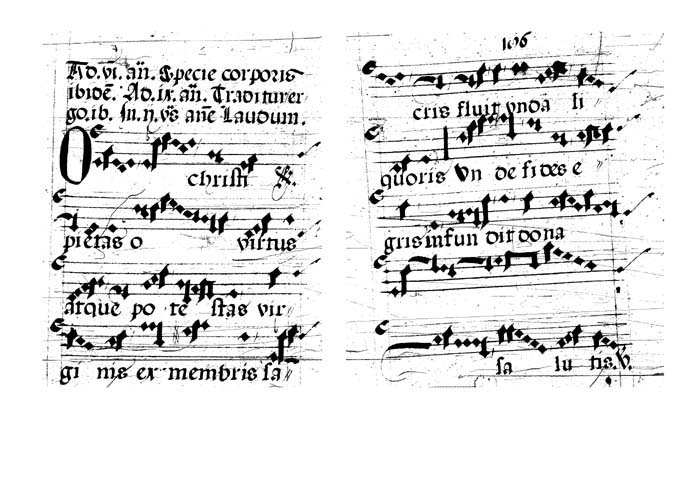 Ad. vi. añ. Specie corporis
ibidē. Ad. ix. añ. Traditur er
go. ib. In. ij. vs̃ añe Laudum.
O christi
pietas o virtus
atque po te stas vir
gi nis ex membris sa
106
cris fluit unda li
quoris Un de fi des e
gris infun dit dona
sa lu tis. V.